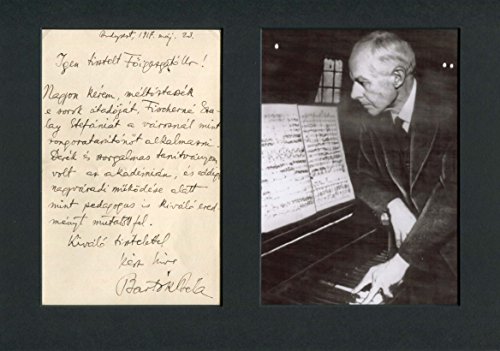 Budapest, 1919. máj. 23.
Igen tisztelt Főigazgató Úr!
Nagyon kérem, méltóztassék
e sorok átadóját, Fischerné Sza-
lay Stefániát a városnál mint
zongoratanítónőt alkalmazni.
Derék és szorgalmas tanítványom
volt az akadémián, és eddigi
nagyváradi működése alatt
mint pedagogus is kiváló ered-
ményt mutatott fel.
Kiváló tisztelettel
kész híve
Bartók Béla